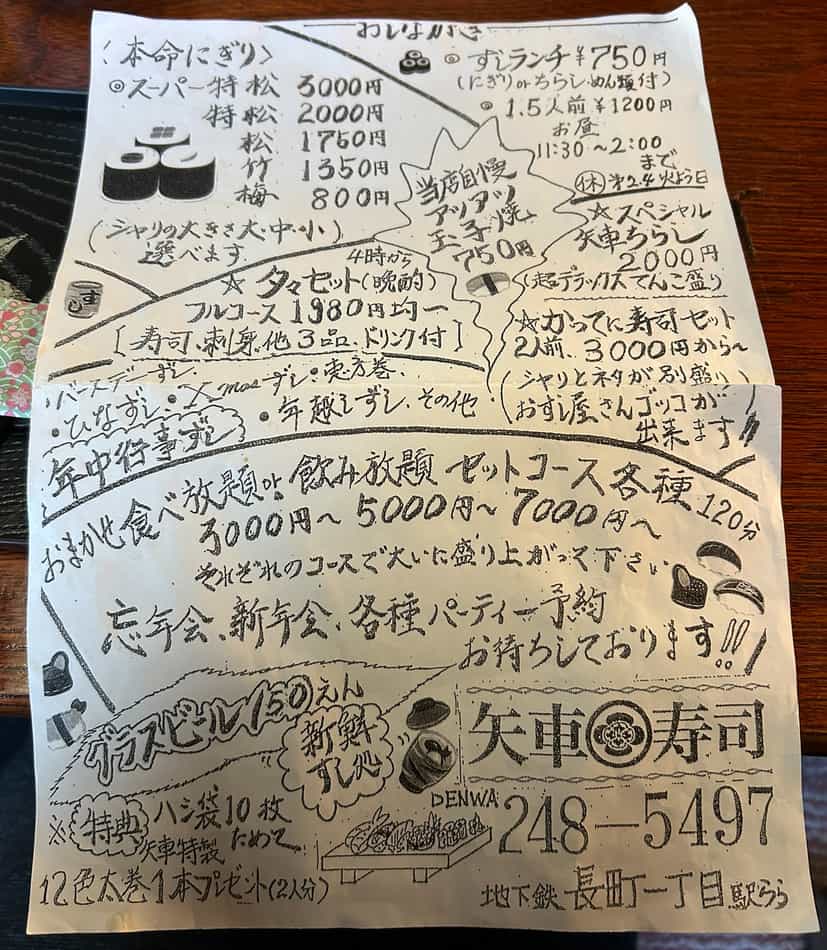 おしながき
〈本命にぎり〉
◎スーパー特松 3000円
特松 2000円
松 1750円
竹 1350円
梅 800円
(シャリの大きさ大・中・小)
選べます
◎すしランチ¥750円
(にぎりorちらし・めん類付)
◎1.5人前¥1200円
お昼
11:30〜2:00
まで
㊡第2.4火よう日
当店自慢
アツアツ
玉子焼
750円
☆スペシャル
矢車ちらし
2000円
(超デラックスてんこ盛り)
☆かってに寿司セット
2人前、3000円から〜
(シャリとネタが別盛り)
おすし屋さんゴッコが
出来ます!!
4時から
☆夕々セット(晩酌)
フルコース1980円均一
[寿司、刺身、他3品、ドリンク付]
すし
・バースデーずし
・ひなずし・Xmasずし・恵方巻、
・年越しずし、その他
年中行事ずし
おまかせ食べ放題or飲み放題セットコース各種
120分
3000円〜5000円〜7000円へ
それぞれのコースで大いに盛り上がって下さい
忘年会、新年会、各種パーティー予約
お待ちしております!!
グラスビール150えん
新鮮
すし処
矢車寿司
DENWA 248-5497
地下鉄 長町一丁目駅うら
※特典 ハシ袋10枚
ためて
矢車特製
12色太巻1本プレゼント(2人分)